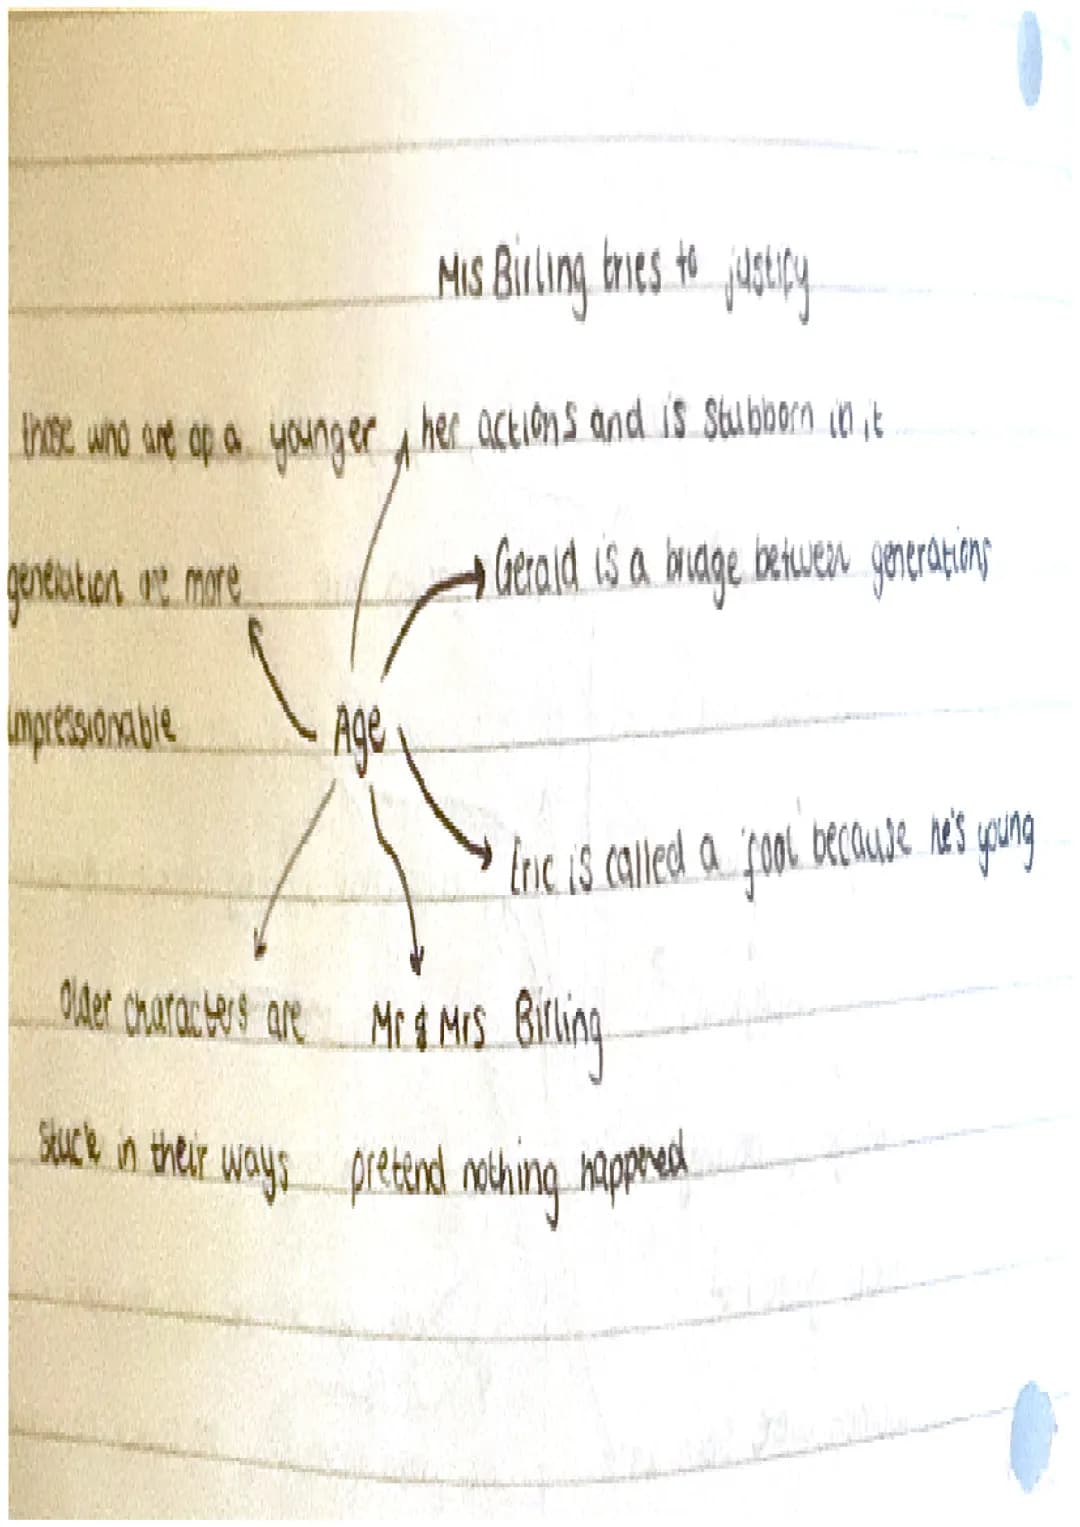 Mrs Birling tries to justify
her actions and is stubborn in it
those who are of a younger
generation are more
impressionable
Gerald is a bridge between generations
Age
Eric is called a 'fool' because he's young
older characters are
stuck in their ways
Mr & Mrs Birling
pretend nothing happened